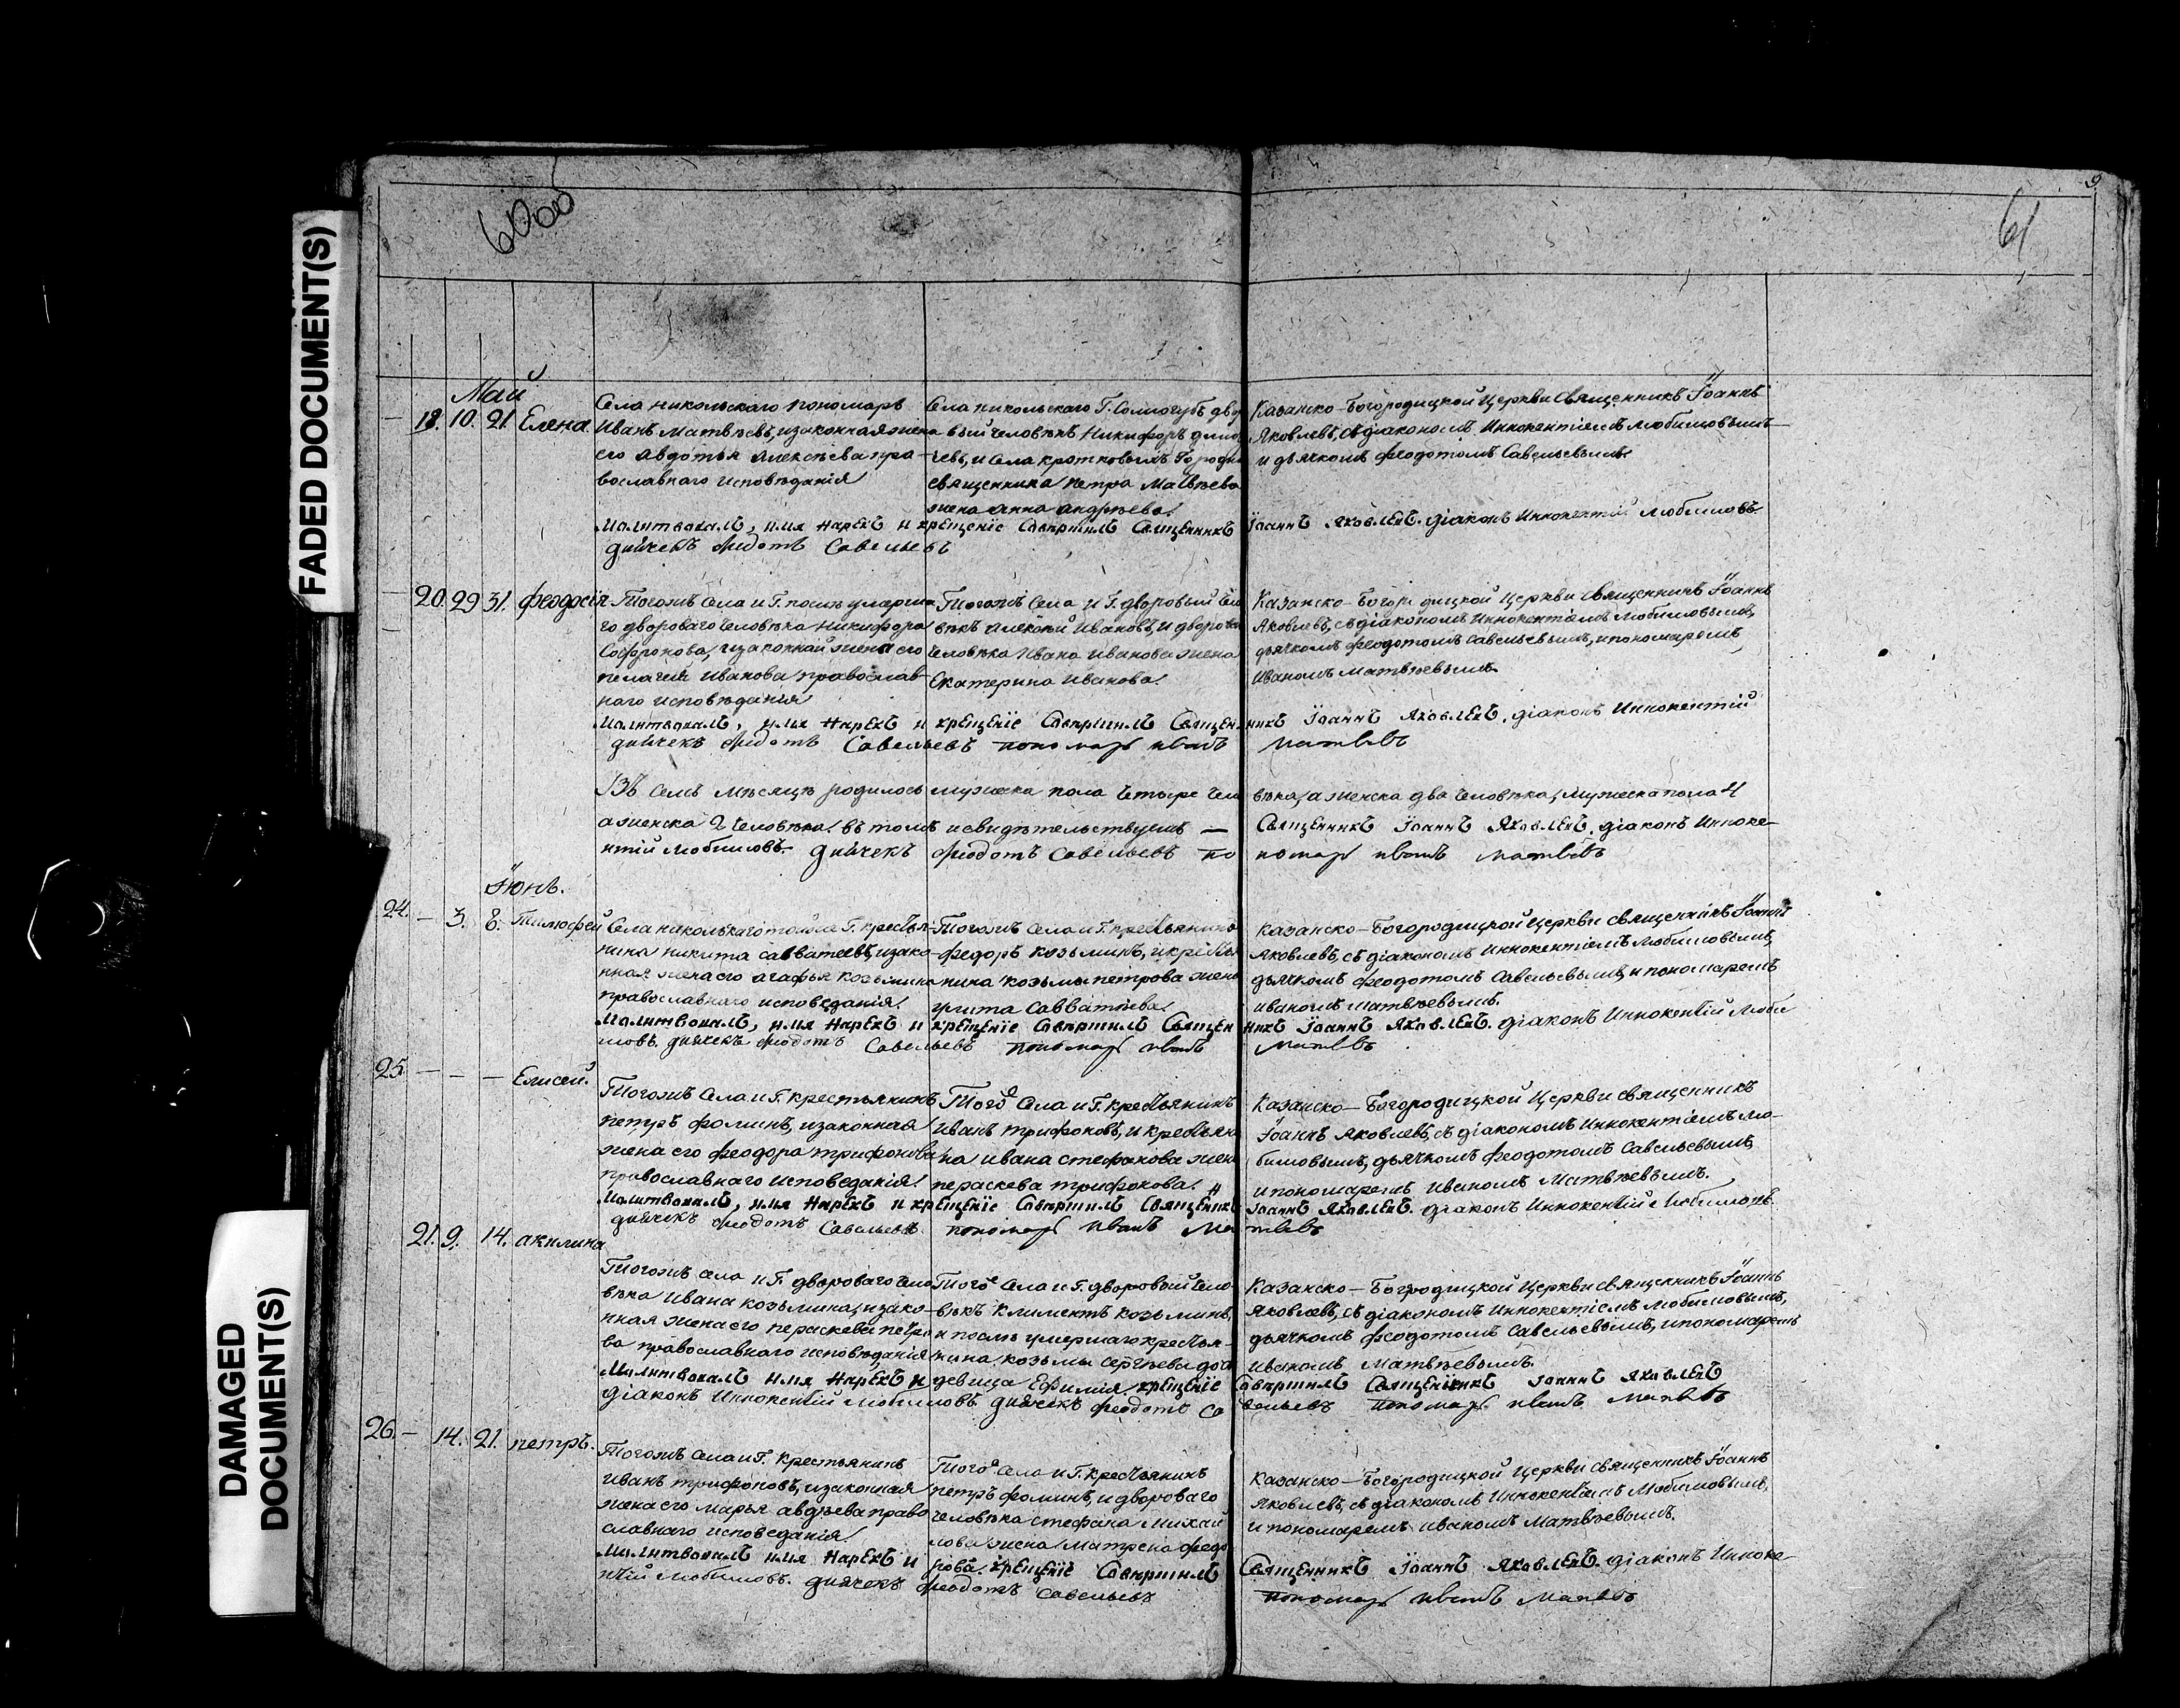 FADED DOCUMENT(S)
DAMAGED DOCUMENT(S)
61
Май
19. 10. 21. Елена
Села никольскаго пономарь
Иванъ Матвѣевъ, изаконная жена
его Авдотья Алексѣева пра-
вославнаго исповѣданія
Села никольскаго Г. Сологубъ дво
вый человѣкъ Никифоръ
чевъ, и села кротковыхъ Городи
священника петра Матвѣева
жена анна андрѣева.
Казанско-Богородицкой Церкви Священникъ Іоаннъ
Яковлевъ, съ діакономъ Иннокентіемъ Любимовымъ
и дьячкомъ феодотомъ Савельевымъ
Молитвовалъ, имя нарекъ и крещеніе Совершилъ Священникъ Іоаннъ Яковлевъ. діаконъ Иннокентій Любимовъ.
дьячекъ федотъ Савельевъ
20. 29 31. феодосія
Тогожъ села и Г. послѣ умерша
го двороваго человѣка Никифора
Софронова, изаконная жена его
пелагея Иванова православ-
наго исповѣданія
Тогожъ Села и Г. дворовый чело
вѣкъ Алексѣй Ивановъ, и дворова
человѣка Ивана Иванова жена
Екатерина Иванова.
Казанско-Богородицкой Церкви Священникъ Іоаннъ
Яковлевъ, съ діакономъ Иннокентіемъ Любимовымъ,
дьячкомъ феодотомъ савельевымъ, ипономаремъ,
Иваномъ Матвѣевымъ.
Молитвовалъ, имя нарекъ и крещеніе Совершилъ Священникъ Іоаннъ Яковлевъ. діаконъ Иннокентій
дьячекъ федотъ Савельевъ пономарь иванъ матвевъ
Въ семъ мѣсяцѣ родилось мужеска пола четыре чело вѣка, аженска два человѣка, мужеска пола 4
аженска 2 человѣка. въ томъ исвидѣтельствуемъ — Священникъ Іоаннъ Яковлевъ. діаконъ Инноке-
нтій Любимовъ. дьячекъ феодотъ Савельевъ пономарь иванъ матвевъ
Іюнь.
24. — 3. 8. Тимофей
Села никольскаго тогоже Г. крестья-
нина никита савватеевъ, изако-
нная жена его агафья козьмина
православнаго исповеданія.
Тогожъ Села и Г. крестьянинъ
федоръ козьминъ, икрестья
нина козьмы петрова жена
улита Савватіева.
Казанско-Богородицкой Церкви священникъ Іоаннъ
Яковлевъ, съ діакономъ Иннокентіемъ Любимовымъ,
дьячкомъ феодотомъ Савельевымъ, и пономаремъ
иваномъ Матвѣевымъ.
Молитвовалъ, имя нарекъ и крещеніе Совершилъ Священникъ Іоаннъ Яковлевъ. діаконъ Иннокентій Люби
мовъ. дьячекъ федотъ Савельевъ пономарь иванъ Матвевъ
25. — — — Елисей.
Тогожъ Села и Г. крестьянинъ
петръ фоминъ, изаконная
жена его феодора трифонова
православнаго исповеданія.
Того Села и Г. крестьянинъ
иванъ трифоновъ, и крестьяни
на ивана стефанова жена
параскева трифонова.
Казанско-Богородицкой Церкви священникъ
Іоаннъ Яковлевъ, съ діакономъ Иннокентіемъ Лю-
бимовымъ, дьячкомъ феодотомъ Савельевымъ,
ипономаремъ Иваномъ Матвѣевымъ.
Молитвовалъ, имя нарекъ и крещеніе Совершилъ Священникъ Іоаннъ Яковлевъ. діаконъ Иннокентій Любимовъ.
дьячекъ феодотъ Савельевъ. пономарь Иванъ Матвевъ
21. 9. 14. акилина
Тогожъ села и Г. двороваго чело
вѣка Ивана козьмина, изако-
нная жена его пераскева петро
ва православнаго исповѣданія
Того Села и Г. дворовый чело
вѣкъ Климентъ козьминъ,
и послѣ умершаго крестья-
нина козьмы сергѣева доч
девица Ефимія
Казанско-Богородицкой Церкви священникъ Іоаннъ
Яковлевъ, съ діакономъ Иннокентіемъ Любимовымъ,
дьячкомъ феодотомъ Савельевымъ, ипономаремъ
Иваномъ Матвѣевымъ.
Молитвовалъ имя нарекъ и крещеніе Совершилъ Священникъ Іоаннъ Яковлевъ
діаконъ Иннокентій Любимовъ дьячекъ феодотъ Савельевъ пономарь иванъ Матвевъ
26. — 14. 21. петръ.
Тогожъ Села и Г. крестьянинъ
иванъ трифоновъ, изаконная
жена его марья авдѣева право
славнаго исповеданія.
Того села и Г. крестьянинъ
петръ фоминъ, и двороваго
человѣка стефана Михай
лова жена Матрена федо
рова.
Казанско-Богородицкой Церкви священникъ Іоаннъ
Яковлевъ, съ діакономъ Иннокентіемъ Любимовымъ,
и пономаремъ иваномъ Матвѣевымъ.
Молитвовалъ имя нарекъ и крещеніе Совершилъ Священникъ Іоаннъ Яковлевъ. діаконъ Инноке-
нтій Любимовъ. дьячекъ феодотъ Савельевъ пономарь иванъ Матвевъ